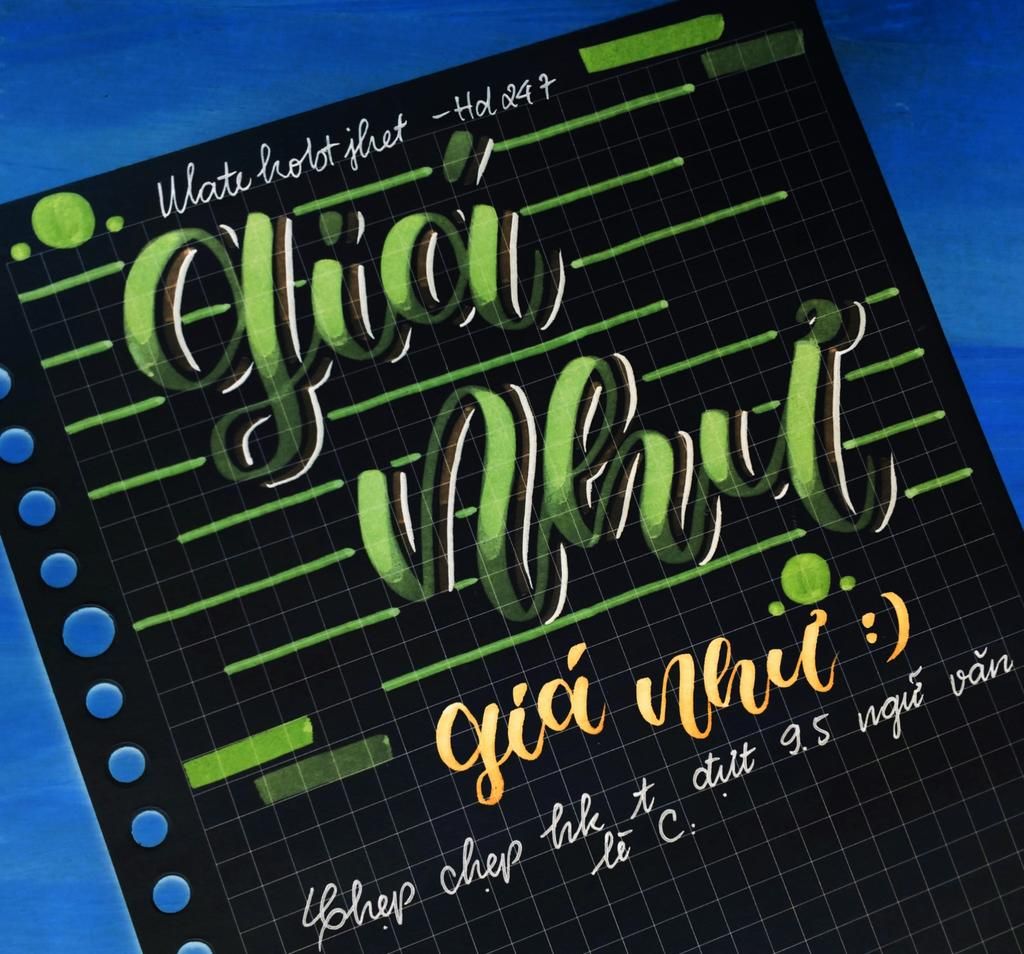 Wate kobt jhet - Hd 247
Giá
Như
giá như :)
Chẹp chẹp hk t đựt 9.5 ngữ văn
lè C: